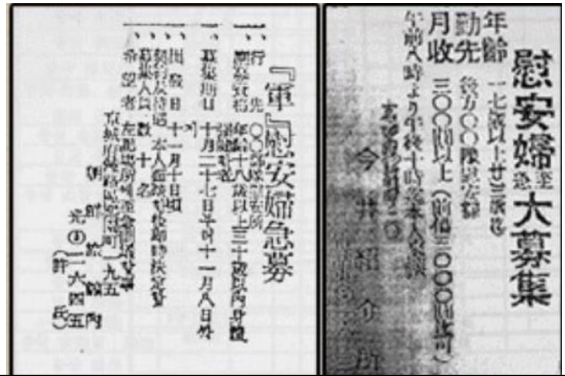 慰安婦至急大募集
年齡 一七歲以上廿三歲迄
勤先 後方〇〇隊慰安部
月收 三〇〇圓以上(前借三〇〇〇圓迄可)
午前八時より午後十時迄本人來談
今井紹介所
『軍』慰安婦急募
一、行先 〇〇部隊慰安所
一、應募資格 年齡十八歲以上三十歲以內身體
一、募集期日 十月二十七日 十一月八日
一、出發日 十一月十日頃
一、契約及待遇 本人面談後卽時決定
一、募集人員 數十名
一、希望者 左記場所
京城府鍾路區樂園町一九五
朝鮮旅館內
光 二六四五
(許氏)